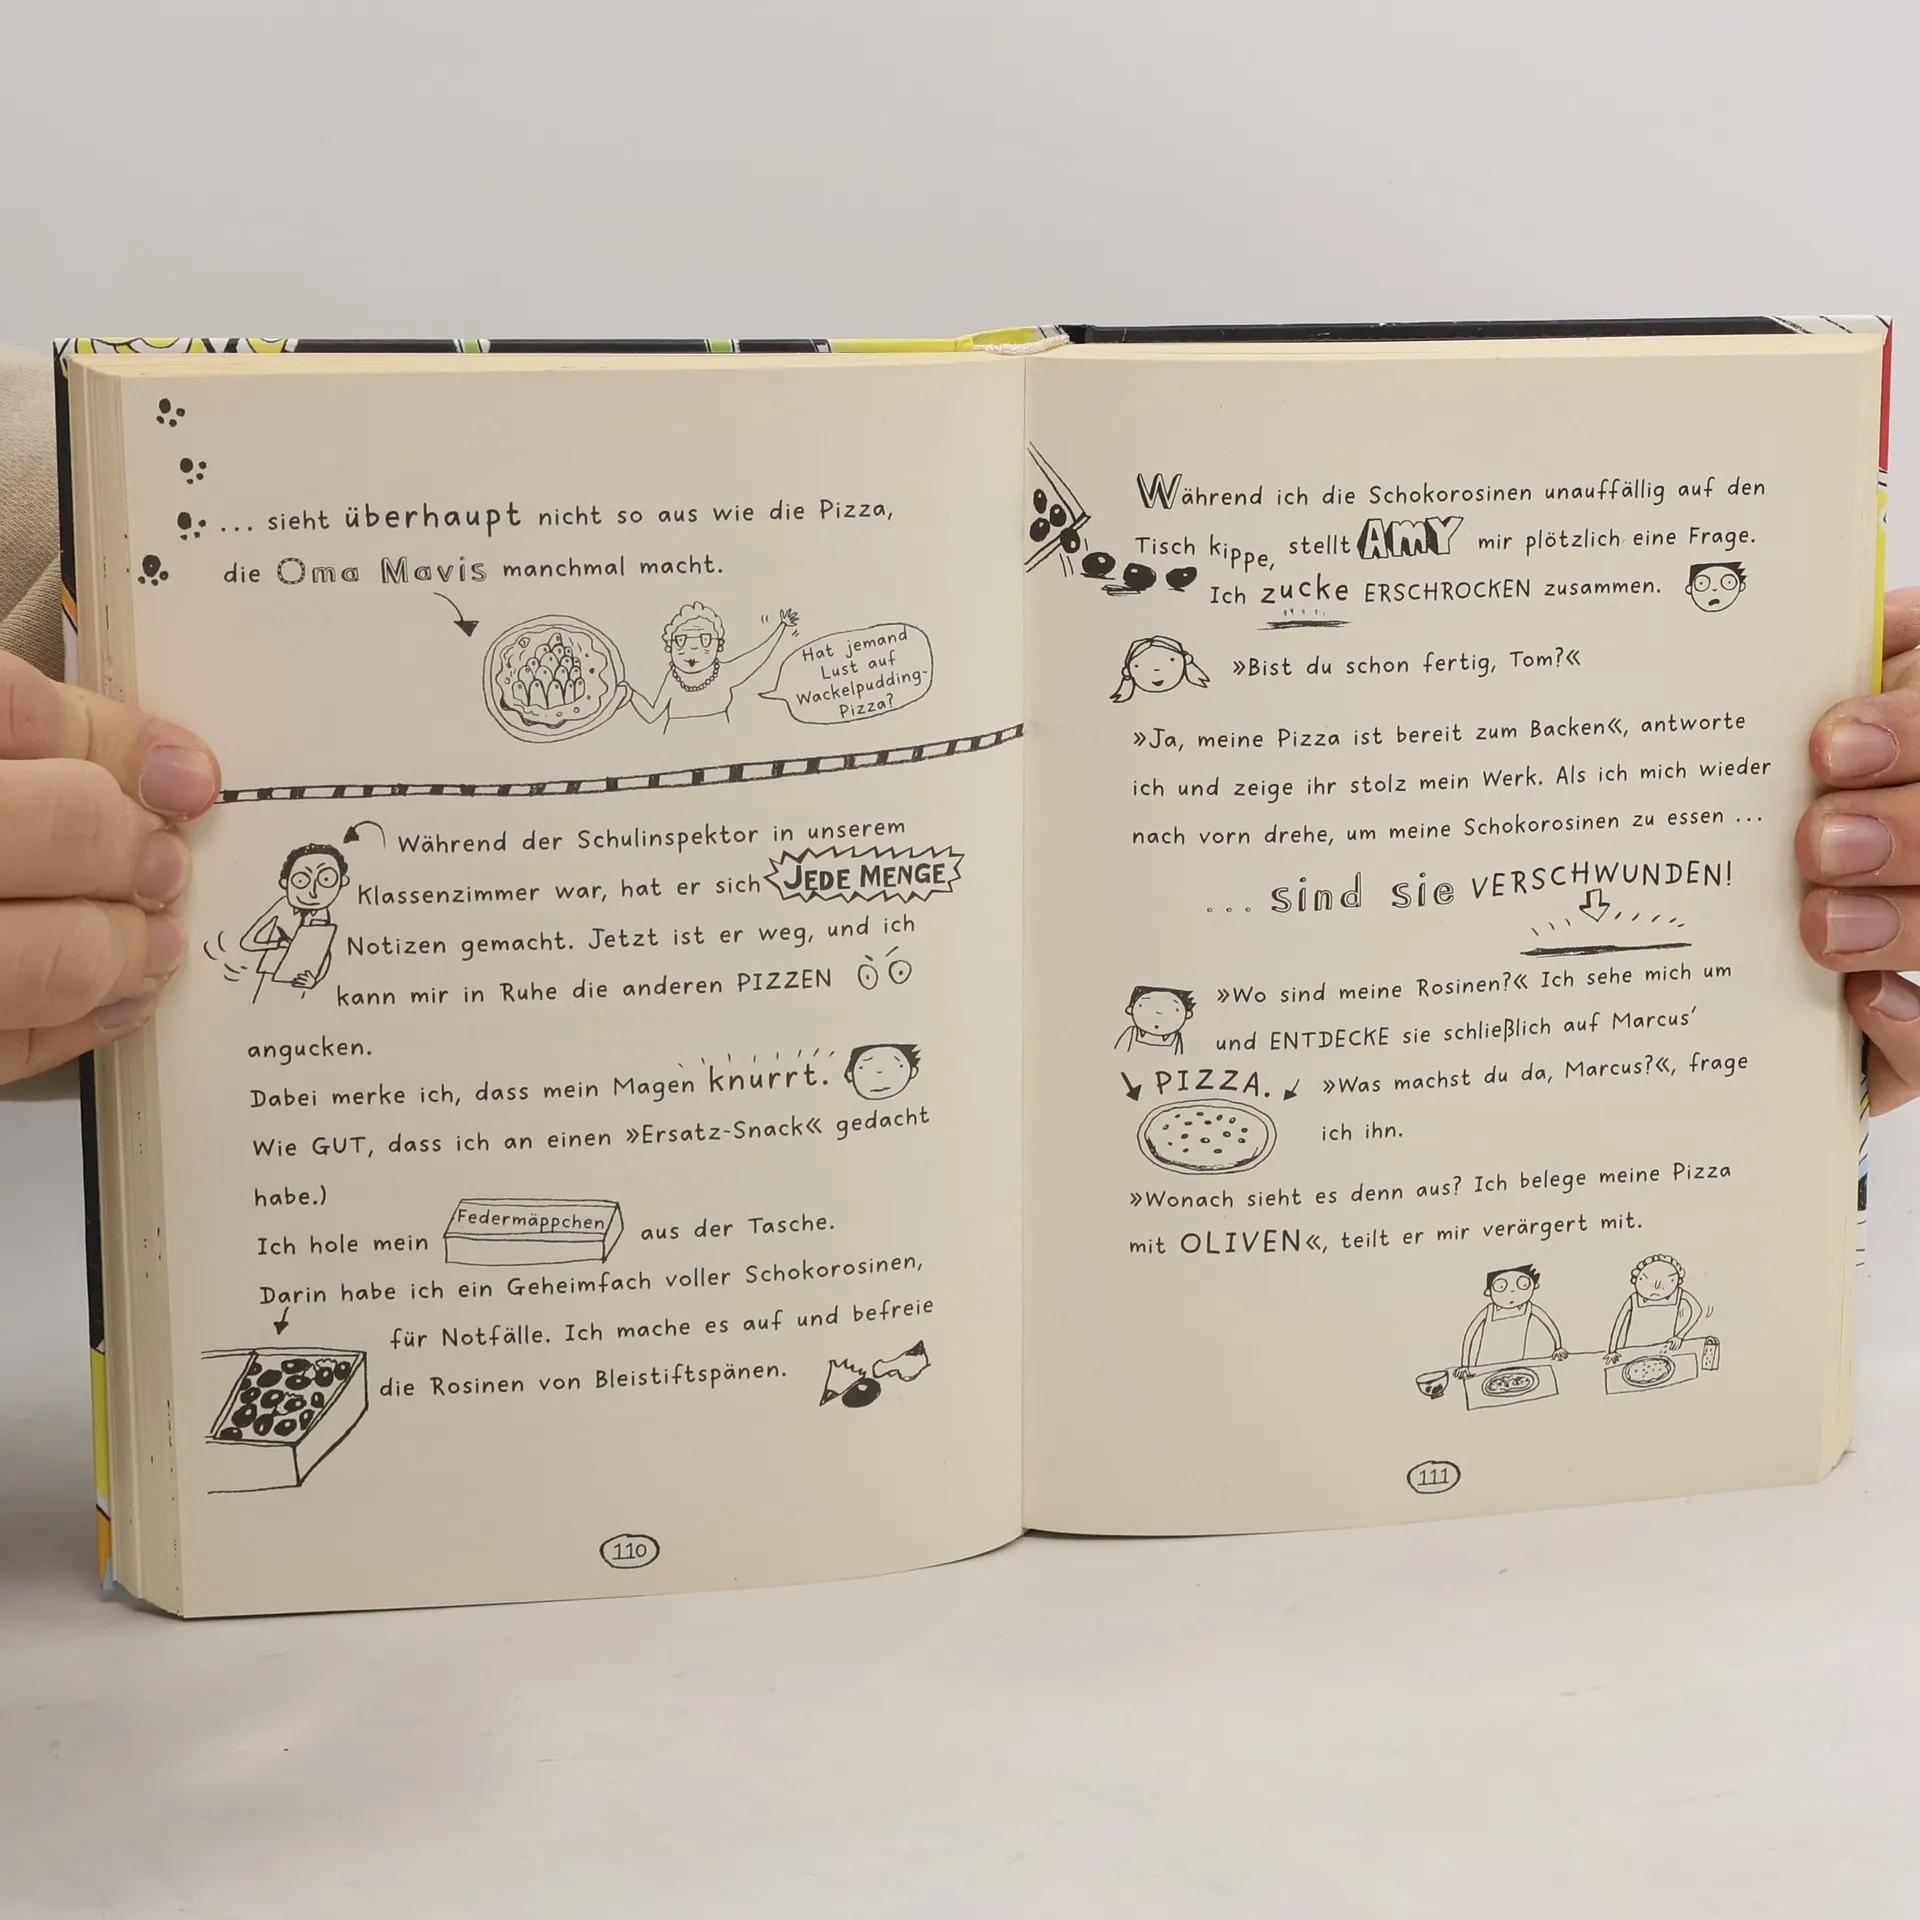 ... sieht überhaupt nicht so aus wie die Pizza,
die Oma Mavis manchmal macht.
Hat jemand
Lust auf
Wackelpudding-
Pizza?
Während der Schulinspektor in unserem
Klassenzimmer war, hat er sich JEDE MENGE
Notizen gemacht. Jetzt ist er weg, und ich
kann mir in Ruhe die anderen PIZZEN
angucken.
Dabei merke ich, dass mein Magen knurrt.
Wie GUT, dass ich an einen »Ersatz-Snack« gedacht
habe.)
Ich hole mein Federmäppchen aus der Tasche.
Darin habe ich ein Geheimfach voller Schokorosinen,
für Notfälle. Ich mache es auf und befreie
die Rosinen von Bleistiftspänen.
110
Während ich die Schokorosinen unauffällig auf den
Tisch kippe, stellt AMY mir plötzlich eine Frage.
Ich zucke ERSCHROCKEN zusammen.
»Bist du schon fertig, Tom?«
»Ja, meine Pizza ist bereit zum Backen«, antworte
ich und zeige ihr stolz mein Werk. Als ich mich wieder
nach vorn drehe, um meine Schokorosinen zu essen ...
... sind sie VERSCHWUNDEN!
»Wo sind meine Rosinen?« Ich sehe mich um
und ENTDECKE sie schließlich auf Marcus'
PIZZA. »Was machst du da, Marcus?«, frage
ich ihn.
»Wonach sieht es denn aus? Ich belege meine Pizza
mit OLIVEN«, teilt er mir verärgert mit.
111